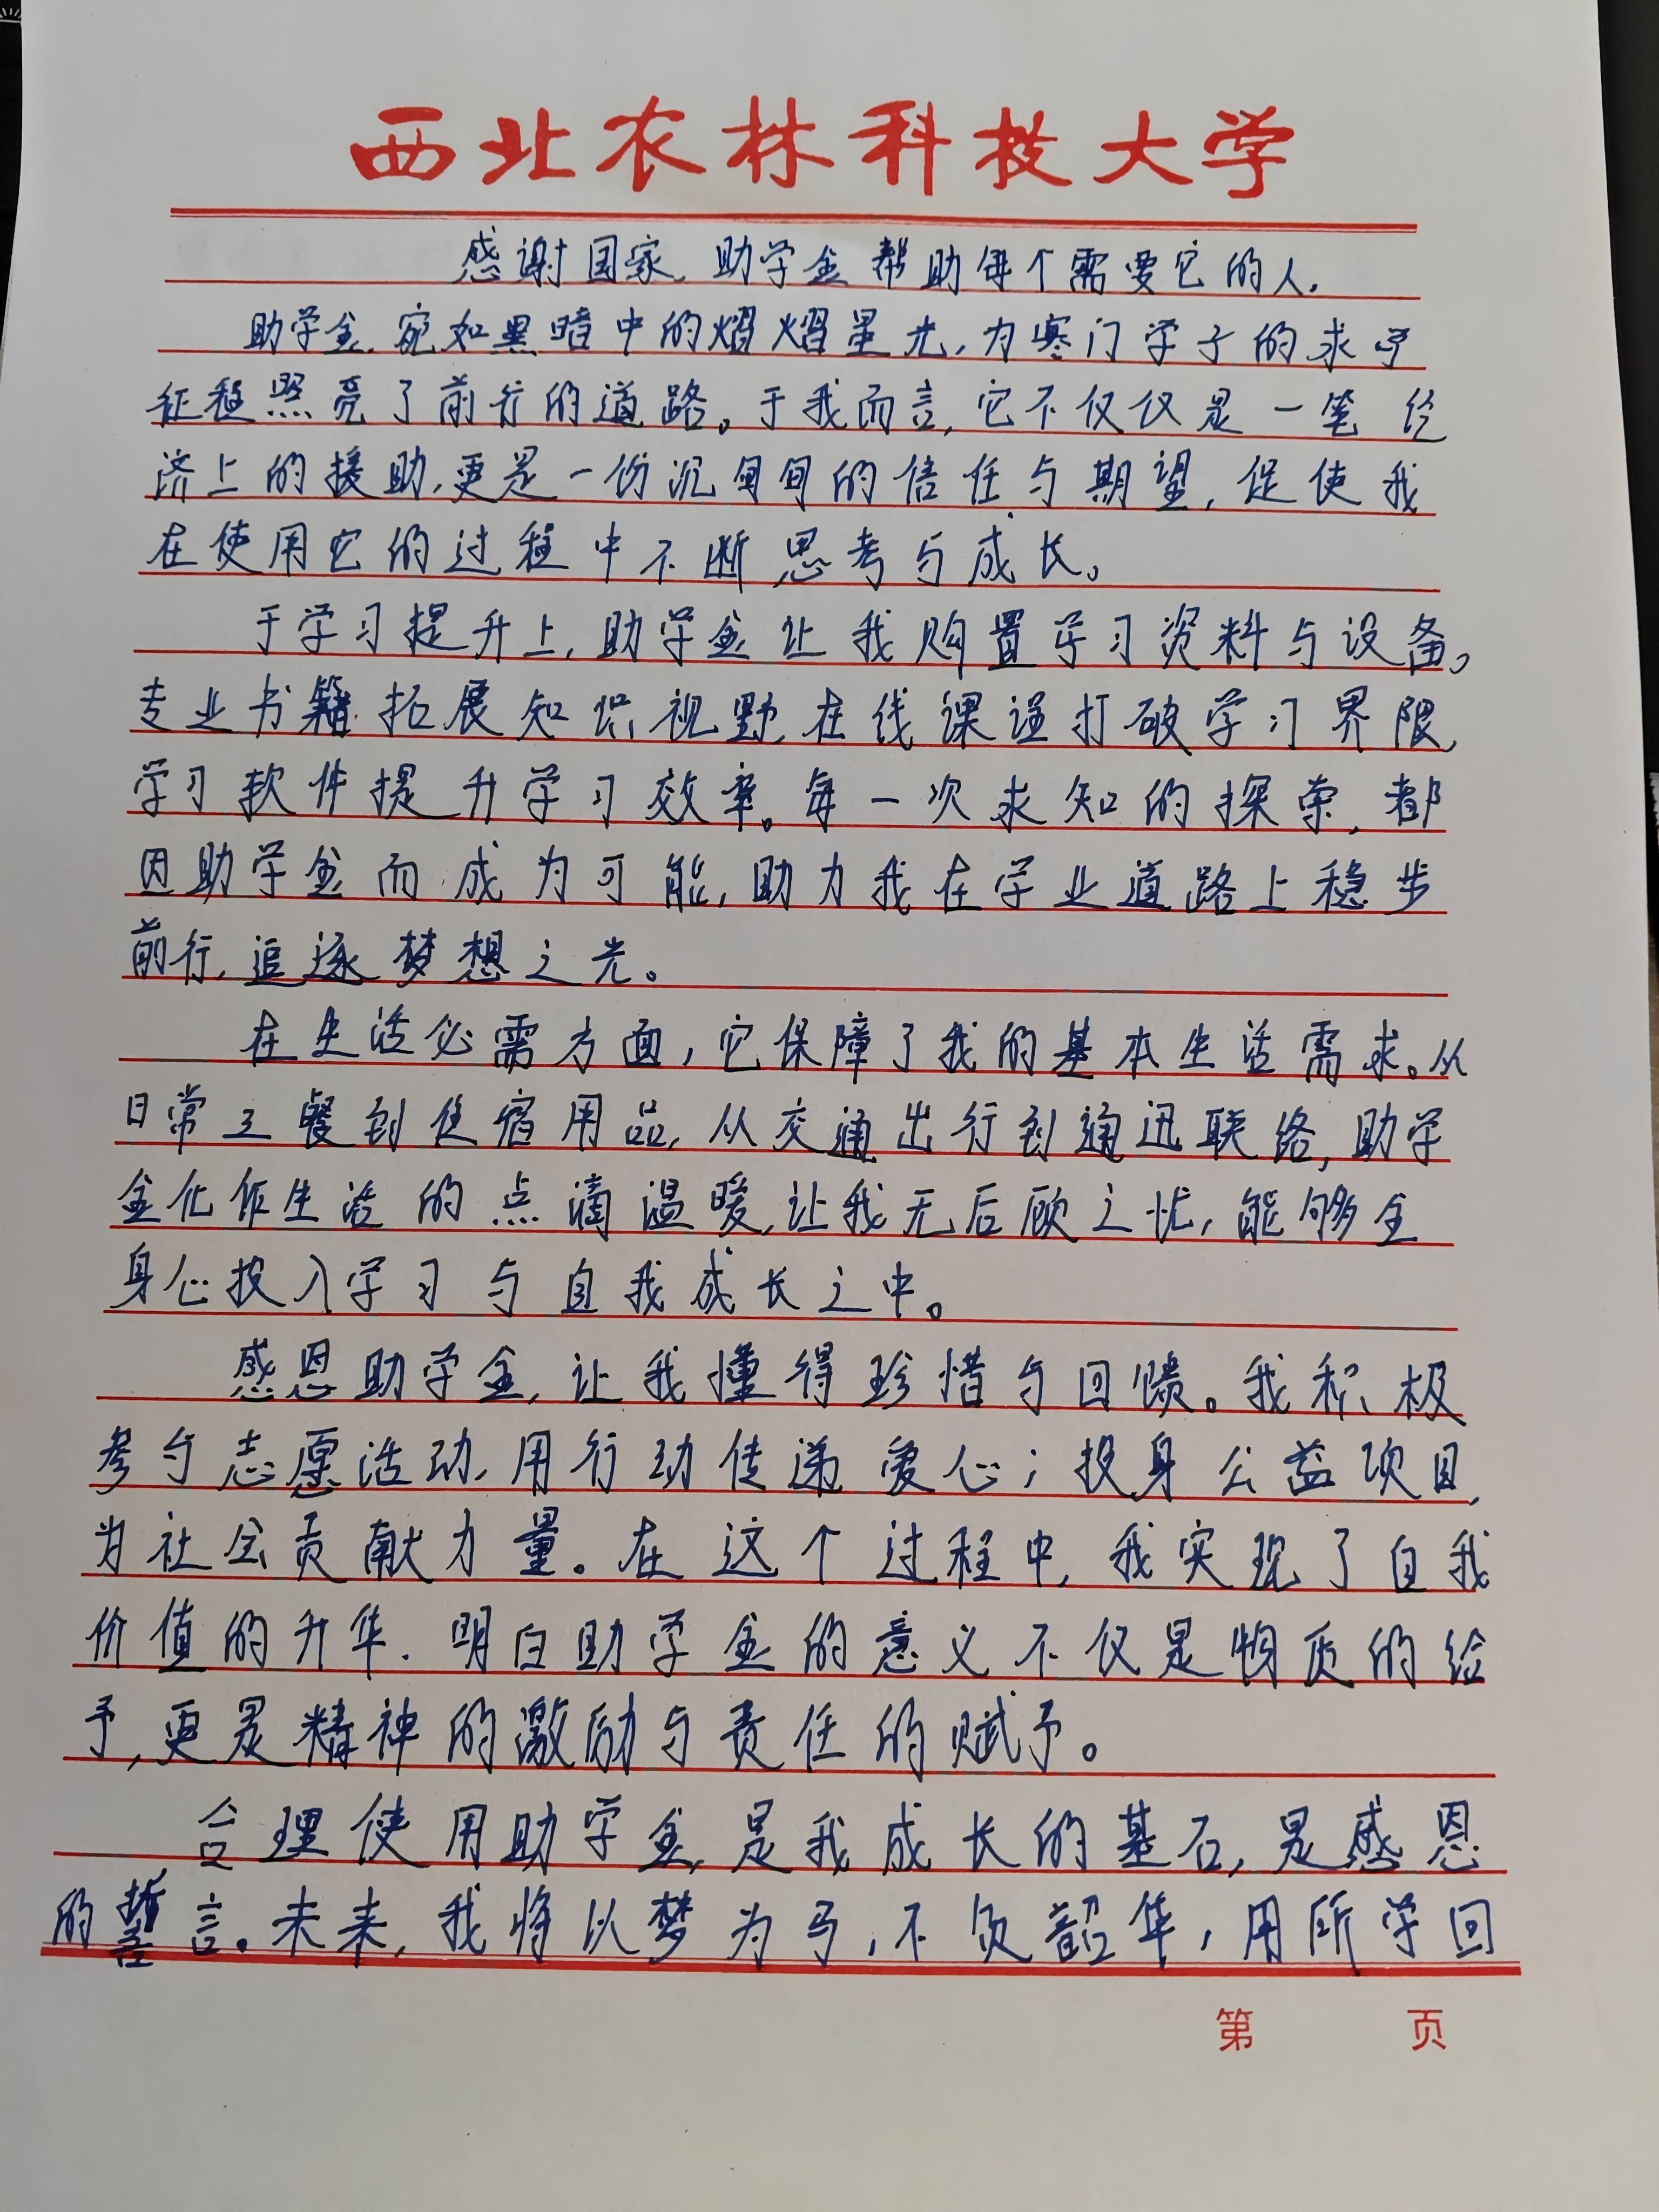 西北农林科技大学
感谢国家,助学金帮助每个需要它的人.
助学金,宛如黑暗中的熠熠星光,为寒门学子的求学
征程照亮了前行的道路。于我而言,它不仅仅是一笔经
济上的援助,更是一份沉甸甸的信任与期望,促使我
在使用它的过程中不断思考与成长。
于学习提升上,助学金让我购置学习资料与设备。
专业书籍拓展知识视野,在线课程打破学习界限,
学习软件提升学习效率。每一次求知的探索,都
因助学金而成为可能,助力我在学业道路上稳步
前行,追逐梦想之光。
在生活必需方面,它保障了我的基本生活需求。从
日常三餐到住宿用品,从交通出行到通迅联络,助学
金化作生活的点滴温暖,让我无后顾之忧,能够全
身心投入学习与自我成长之中。
感恩助学金,让我懂得珍惜与回馈。我积极
参与志愿活动,用行动传递爱心;投身公益项目,
为社会贡献力量。在这个过程中,我实现了自我
价值的升华.明白助学金的意义不仅是物质的给
予,更是精神的激励与责任的赋予。
合理使用助学金,是我成长的基石,是感恩
的誓言。未来,我将以梦为马,不负韶华,用所学回
第 页